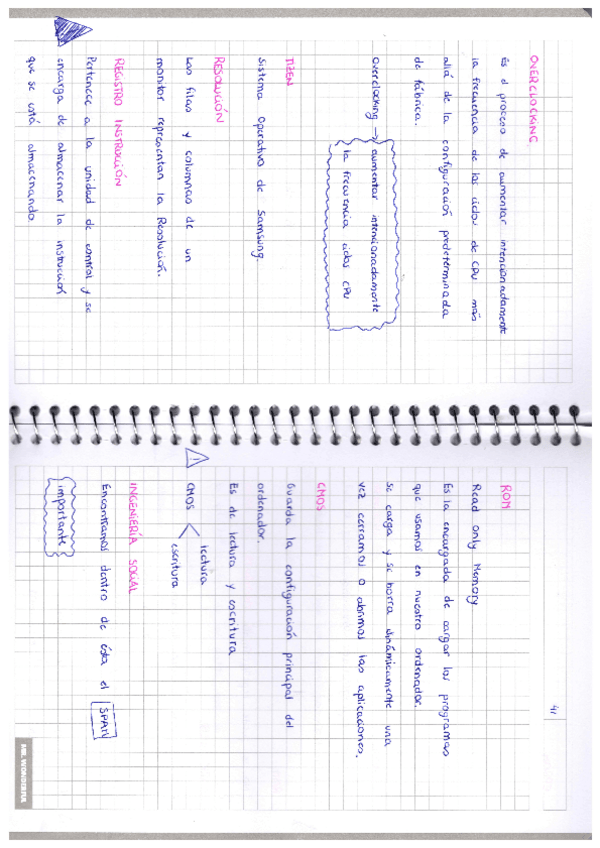 OVERCLOCKING.
Es el proceso de aumentar intencionadamente
la frecuencia de los ciclos de CPU más
allá de la configuración predeterminada
de fábrica.
Overclocking → aumentar intencionadamente
la frecuencia ciclos CPU
TIZEN
Sistema Operativo de Samsung.
RESOLUCIÓN
Las filas y columnas de un
monitor representan la Resolución.
REGISTRO INSTRUCCIÓN
Pertenece a la unidad de control y se
encarga de almacenar la instrucción
que se está almacenando.
41
ROM
Read Only Memory
Es la encargada de cargar los programas
que usamos en nuestro ordenador.
Se carga y se borra dinámicamente una
vez cerramos o abrimos las aplicaciones.
CMOS
Guarda la configuración principal del
ordenador.
Es de lectura y escritura
CMOS
lectura
escritura
INGENIERÍA SOCIAL
Encontramos dentro de ésta el SPAM
importante
MR. WONDERFUL